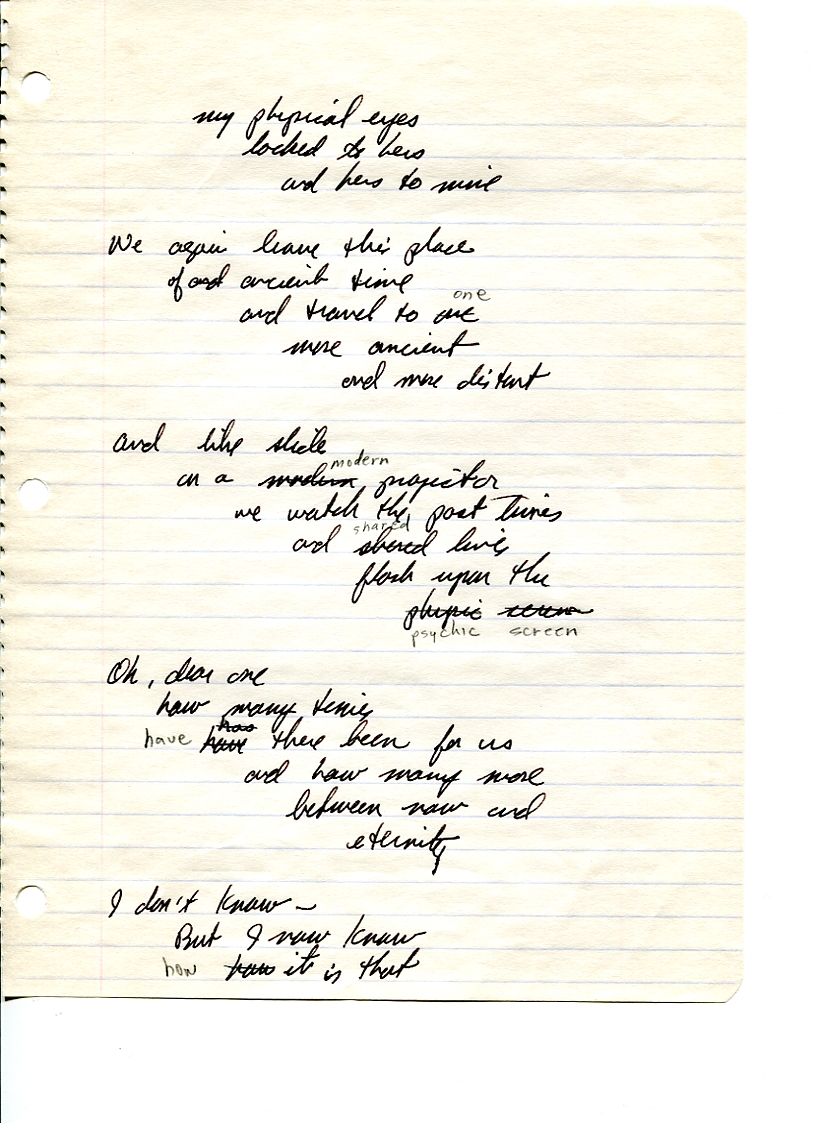 my physical eyes
locked to hers
and hers to mine
We again leave this place
of and ancient time
one
and travel to one
more ancient
and more distant
and like slide
modern
on a modern projector
we watch the past times
shared
and shared lives
flash upon the
physic screen
psychic screen
Oh, dear one
how many times
has
have have there been for us
and how many more
between now and
eternity
I don't know –
But I now know
how how it is that